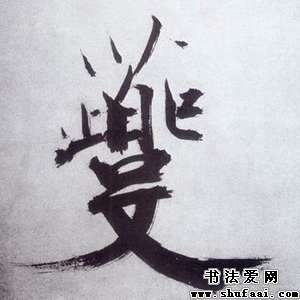 夔
书法爱网
www.shufaai.com